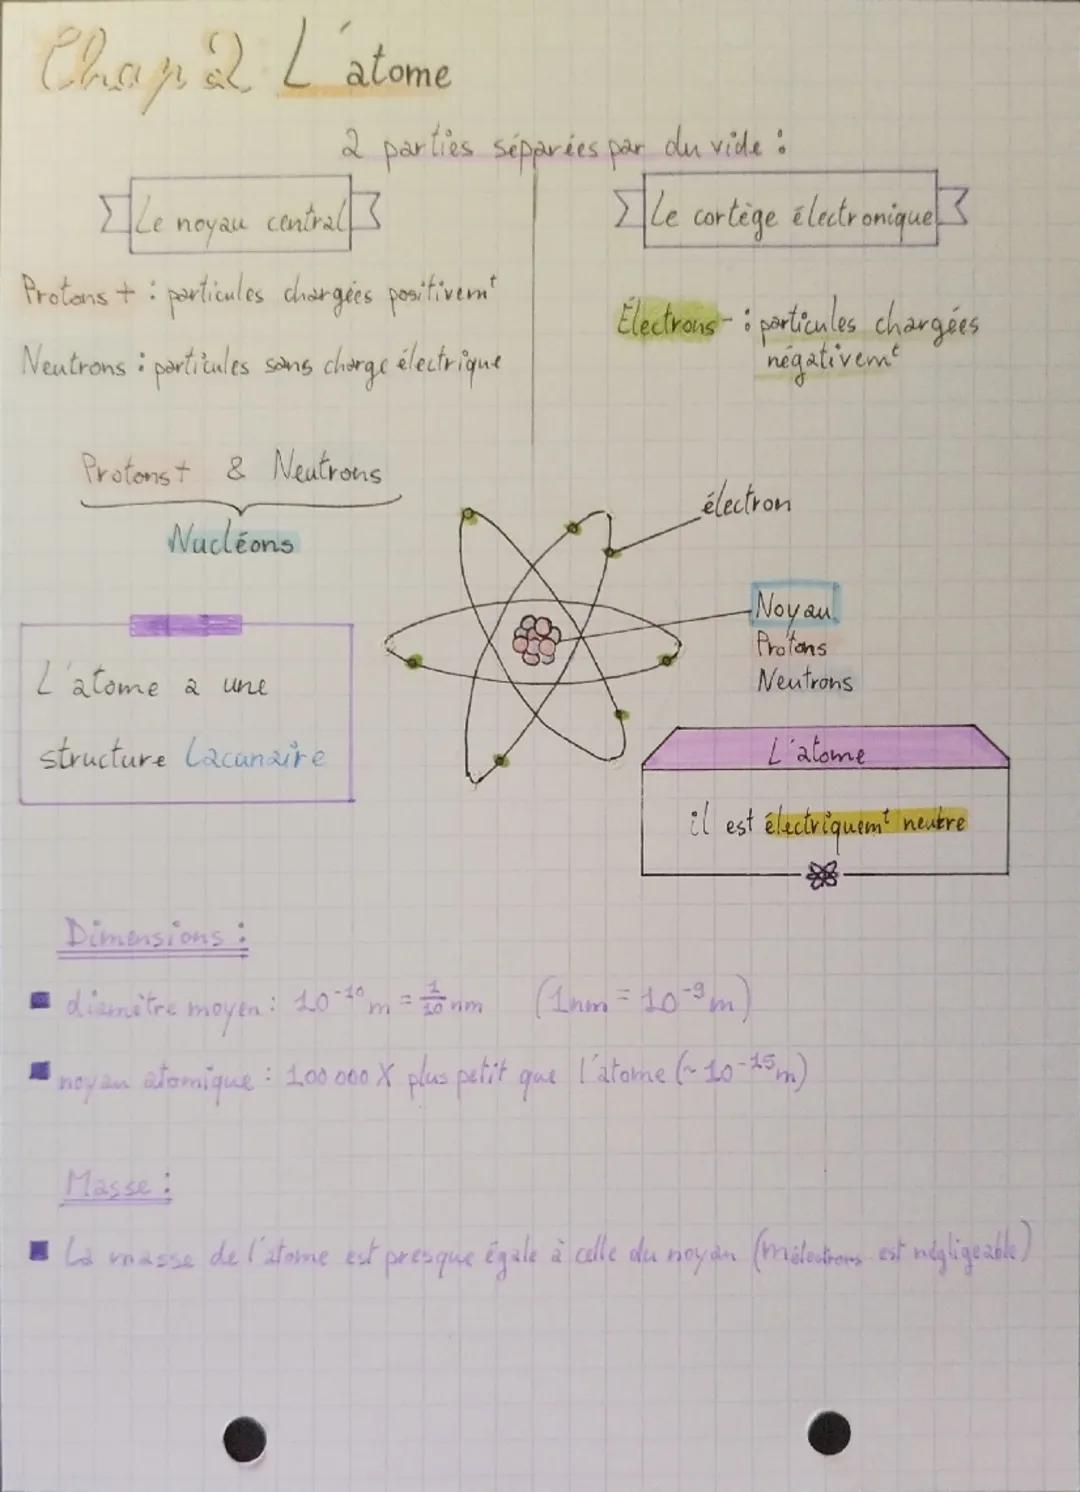 Chap 2 L'atome
2 parties séparées par du vide :
Le noyau central
Protons + : particules chargées positivemt
Neutrons : particules sans charge électrique
Le cortège électronique
Électrons - : particules chargées
négativemt
Protons + & Neutrons
Nucléons
électron
Noyau
Protons
Neutrons
L'atome a une
structure Lacunaire
L'atome
il est électriquemt neutre
Dimensions :
diamètre moyen : 10⁻¹⁰ m = 1/10 nm (1nm = 10⁻⁹ m)
noyau atomique : 100 000 X plus petit que l'atome (~ 10⁻¹⁵ m)
Masse :
La masse de l'atome est presque égale à celle du noyau (mélectrons est négligeable)